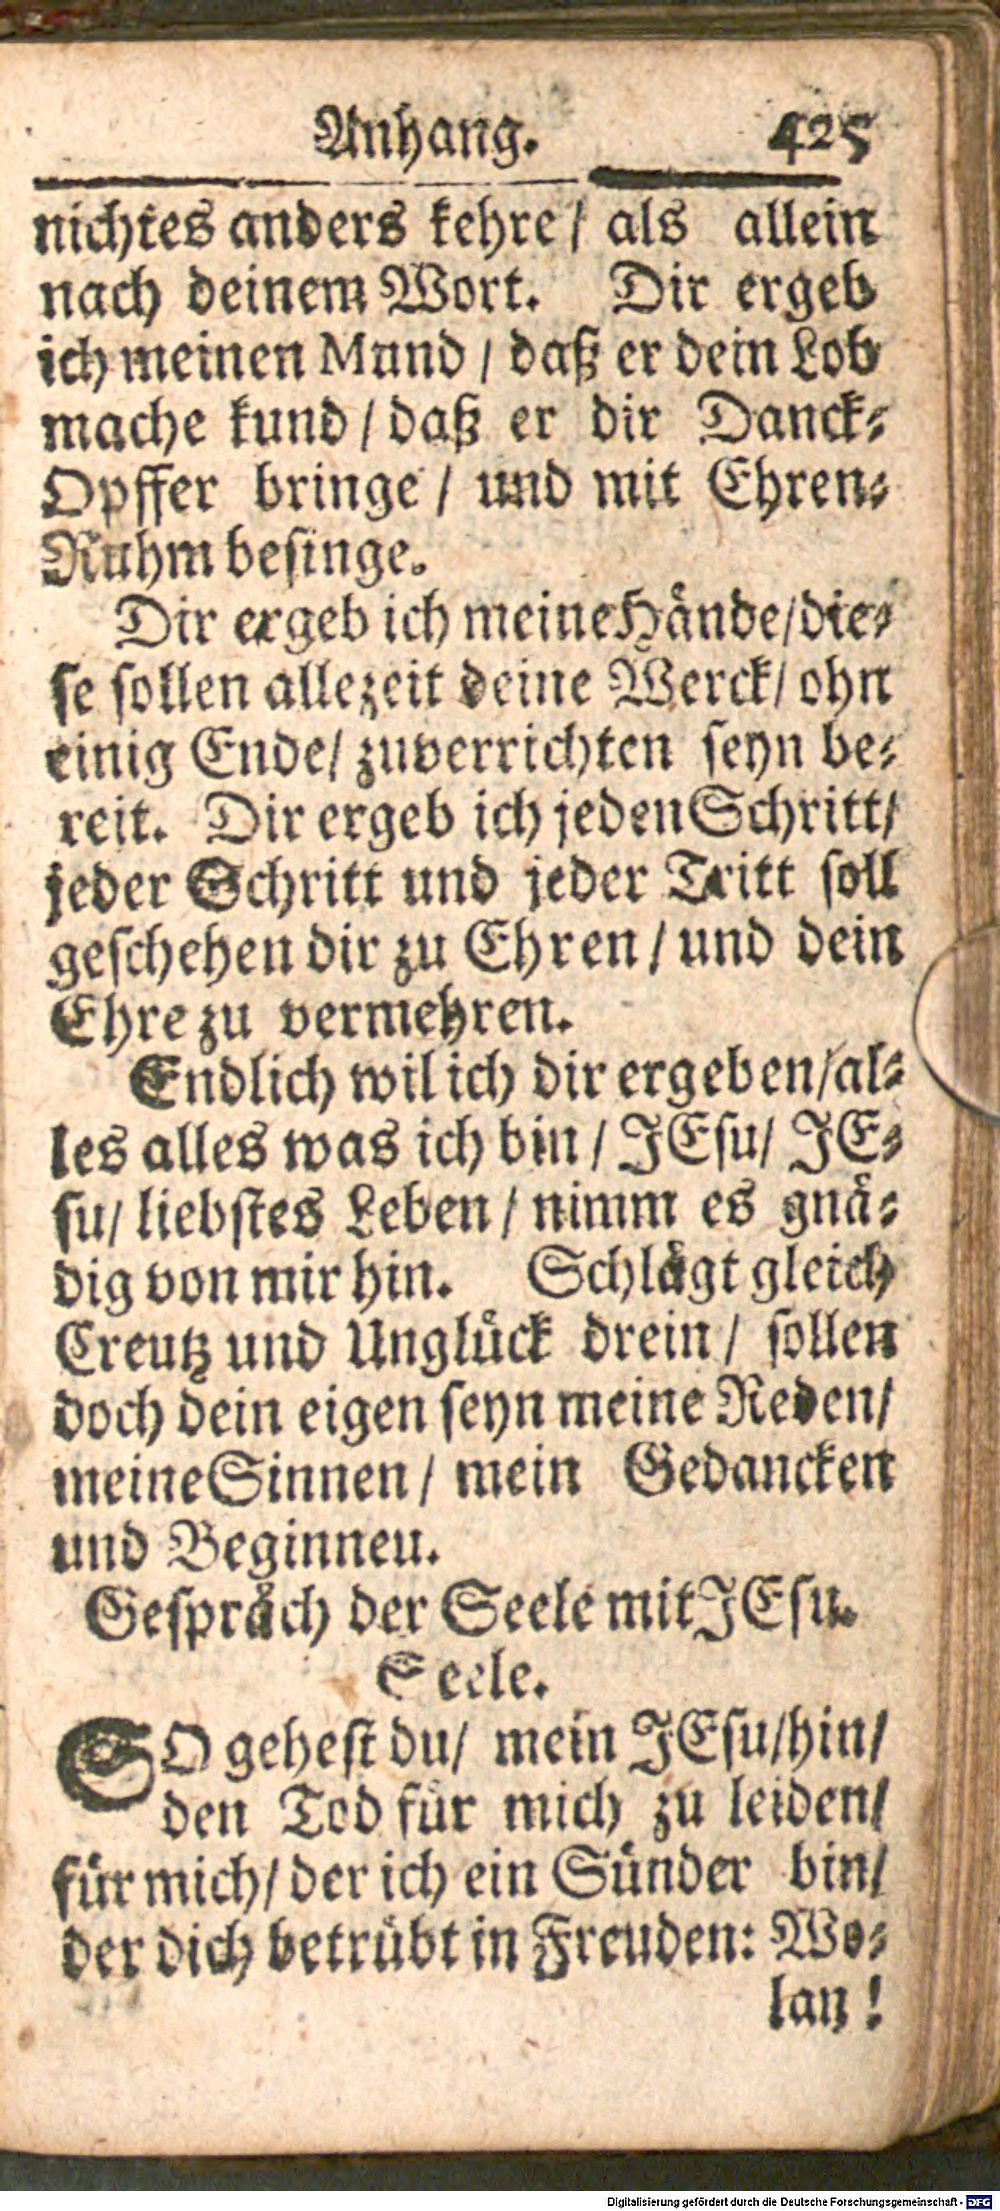 Anhang. 425
nichtes anders kehre / als allein
nach deinem Wort. Dir ergeb
ich meinen Mund / daß er dein Lob
mache kund / daß er dir Danck⸗
Opffer bringe / und mit Ehren⸗
Ruhm besinge.
Dir ergeb ich meine Hände / die⸗
se sollen allezeit deine Werck / ohn
einig Ende / zuverrichten seyn be⸗
reit. Dir ergeb ich jeden Schritt /
jeder Schritt und jeder Tritt soll
geschehen dir zu Ehren / und dein
Ehre zu vermehren.
Endlich wil ich dir ergeben / al⸗
les alles was ich bin / JEsu / JE⸗
su / liebstes Leben / nimm es gnä⸗
dig von mir hin. Schlägt gleich
Creutz und Unglück drein / sollen
doch dein eigen seyn meine Reden /
meine Sinnen / mein Gedancken
und Beginneu.
Gespräch der Seele mit JEsu.
Seele.
SO gehest du / mein JEsu / hin /
den Tod für mich zu leiden /
für mich / der ich ein Sünder bin /
der dich betrübt in Freuden: Wo⸗
lan !
Digitalisierung gefördert durch die Deutsche Forschungsgemeinschaft - DFG